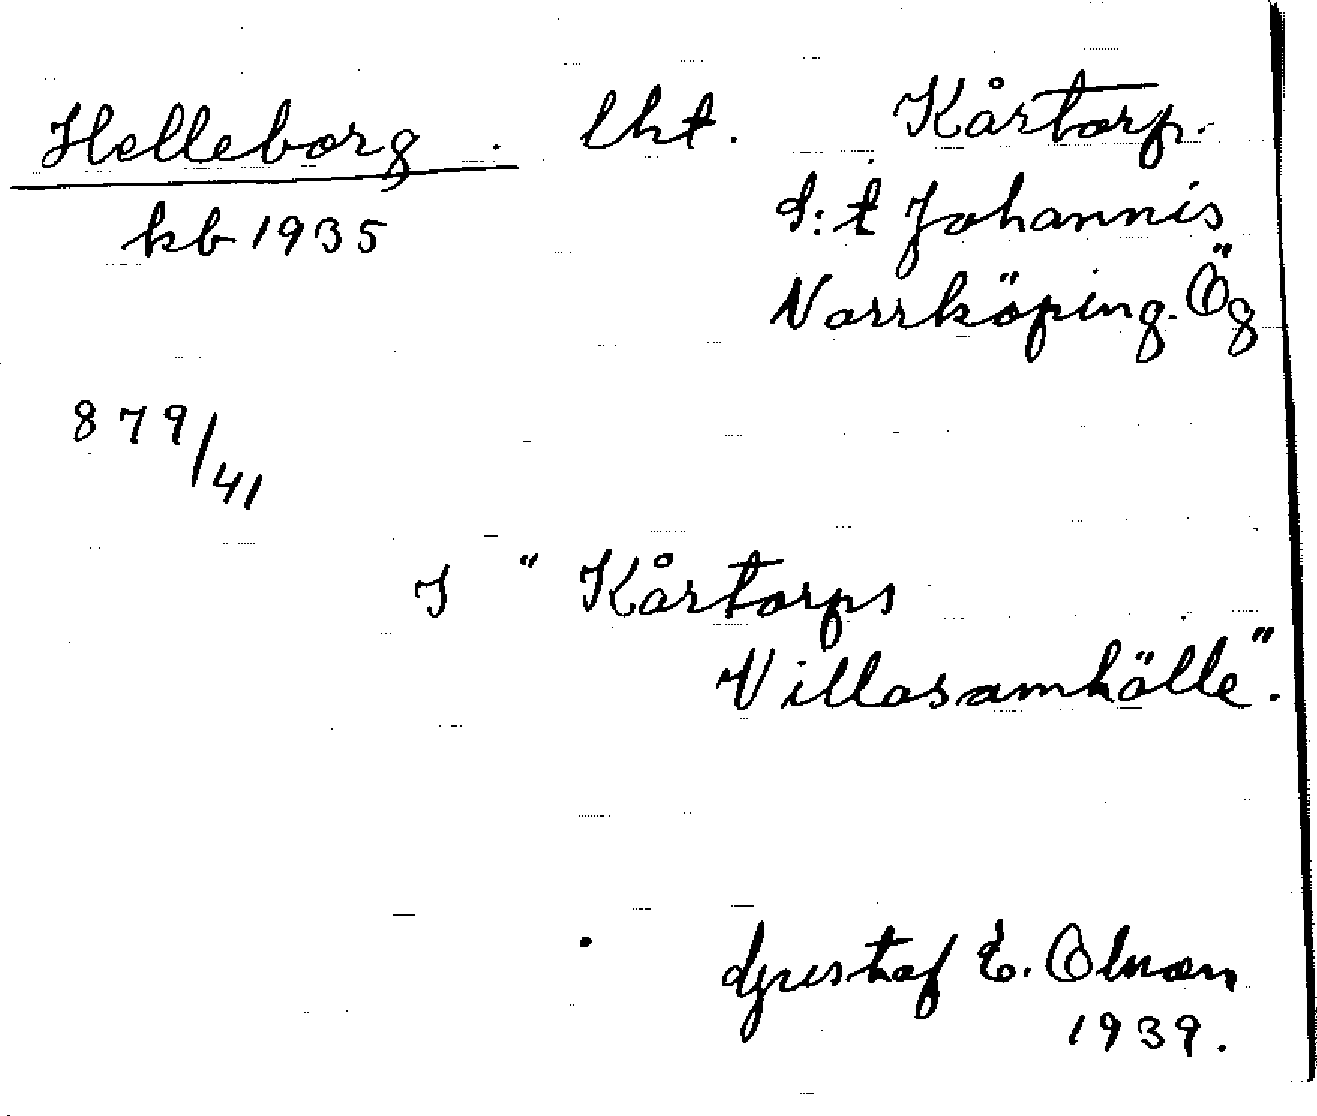 Helleborg. lht. Kårtorp.
kb 1935 S:t Johannis
Norrköping. Ög
879/41
I "Kårtorps
Villasamhälle".
Gustaf E. Olsson
1939.